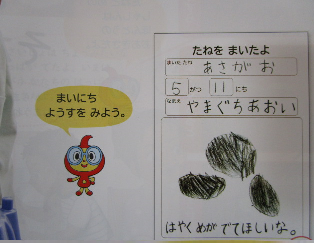 まいにち
ようすを みよう。
たねを まいたよ
まいた たね
あさがお
5 がつ 11 にち
なまえ
やまぐちあおい
はやく めが でてほしいな。